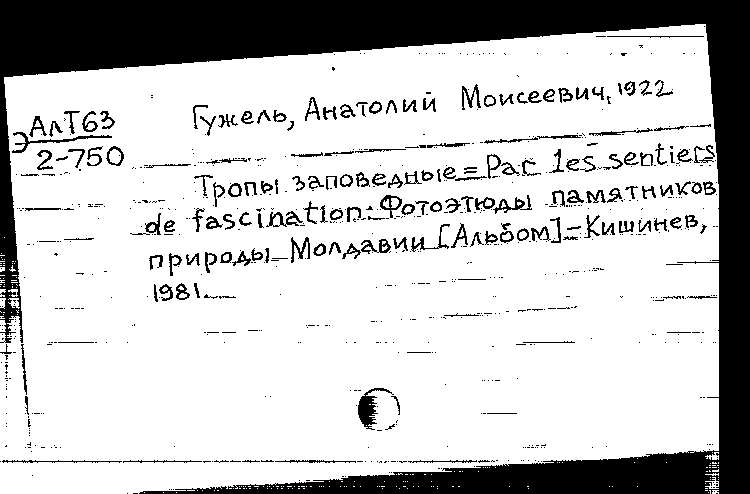 Гужель, Анатолий Моисеевич, 1922
ЭАлТ63
2-750
Тропы заповедные = Par les sentiers
de fascination: Фотоэтюды памятников
природы Молдавии [Альбом] - Кишинев,
1981.